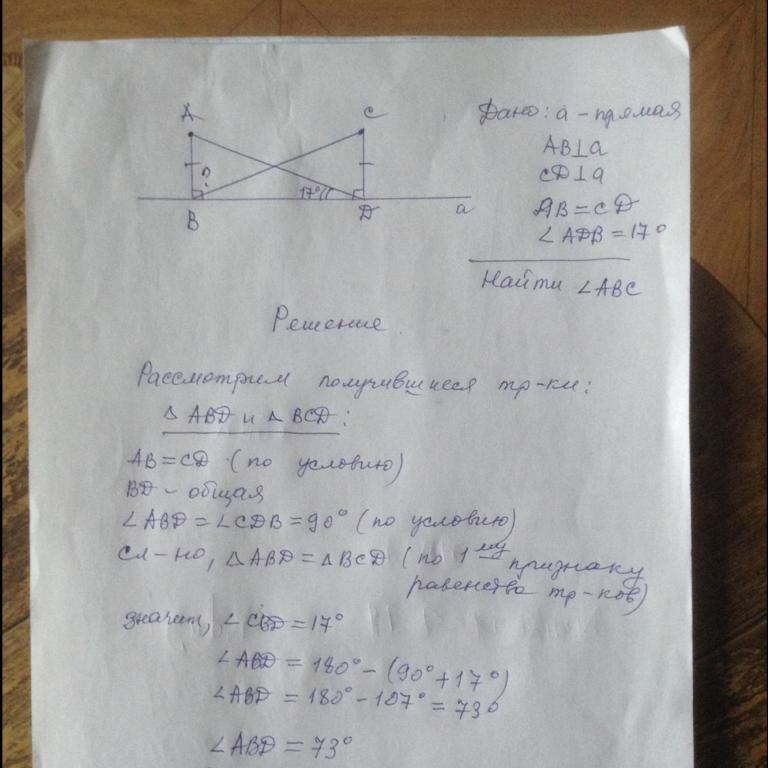 A
C
Дано: a - прямая
AB⊥a
CD⊥a
AB=CD
∠ADB=17°
?
17°
B
D
a
Найти ∠ABC
Решение.
Рассмотрим получившиеся тр-ки:
△ ABD и △ BCD:
AB=CD (по условию)
BD - общая
∠ABD=∠CDB=90° (по условию)
сл-но, △ABD=△BCD (по 1му признаку
равенства тр-ков)
значит, ∠CBD=17°
∠ABD = 180°-(90°+17°)
∠ABD = 180°-107° = 73°
∠ABD = 73°